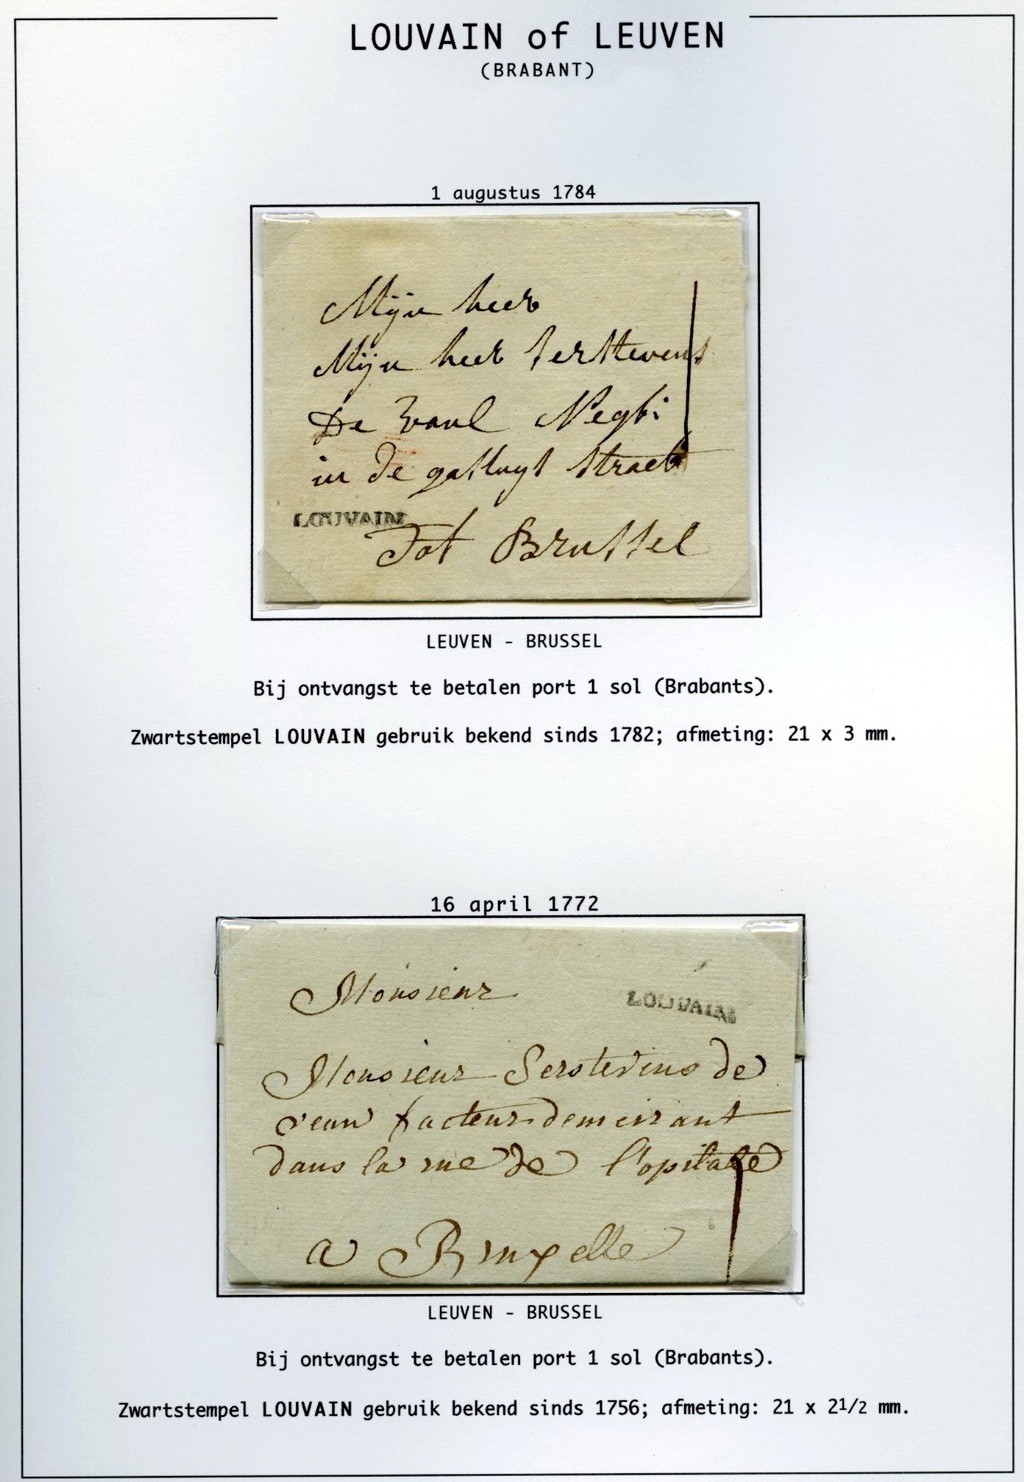 LOUVAIN of LEUVEN
(BRABANT)
1 augustus 1784
Mijn heer
Mijn heer Serstevens
De
in de gasthuys straet
LOUVAIN
Tot Brussel
LEUVEN - BRUSSEL
Bij ontvangst te betalen port 1 sol (Brabants).
Zwartstempel LOUVAIN gebruik bekend sinds 1782; afmeting: 21 x 3 mm.
16 april 1772
Monsieur
LOUVAIN
Monsieur Serstevens de
facteur demeurant
dans la rue de l'opitale
a Bruxelle
LEUVEN - BRUSSEL
Bij ontvangst te betalen port 1 sol (Brabants).
Zwartstempel LOUVAIN gebruik bekend sinds 1756; afmeting: 21 x 21/2 mm.